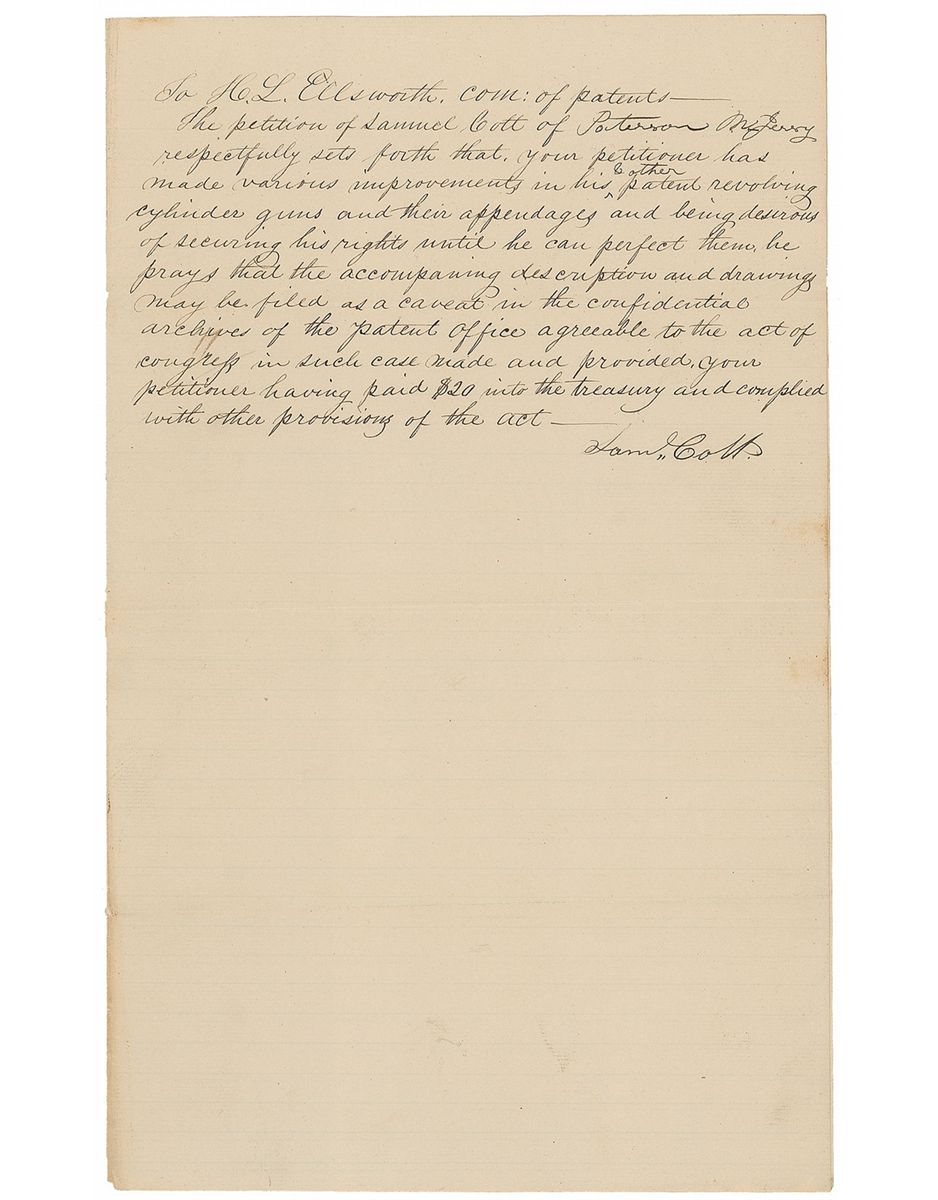 To H. L. Ellsworth. com: of patents—
The petition of Samuel Colt of Paterson N Jersy
respectfully sets forth that, your petitioner has
& other
made various improvements in his ^ patent revolving
cylinder guns and their appendages ^ and being desirous
of securing his rights until he can perfect them, he
prays that the accompaning description and drawings
may be filed as a caveat in the confidential
archives of the patent office agreeable to the act of
congress in such case made and provided, your
petitioner having paid $20 into the treasury and complied
with other provisions of the act —
Saml, Colt.